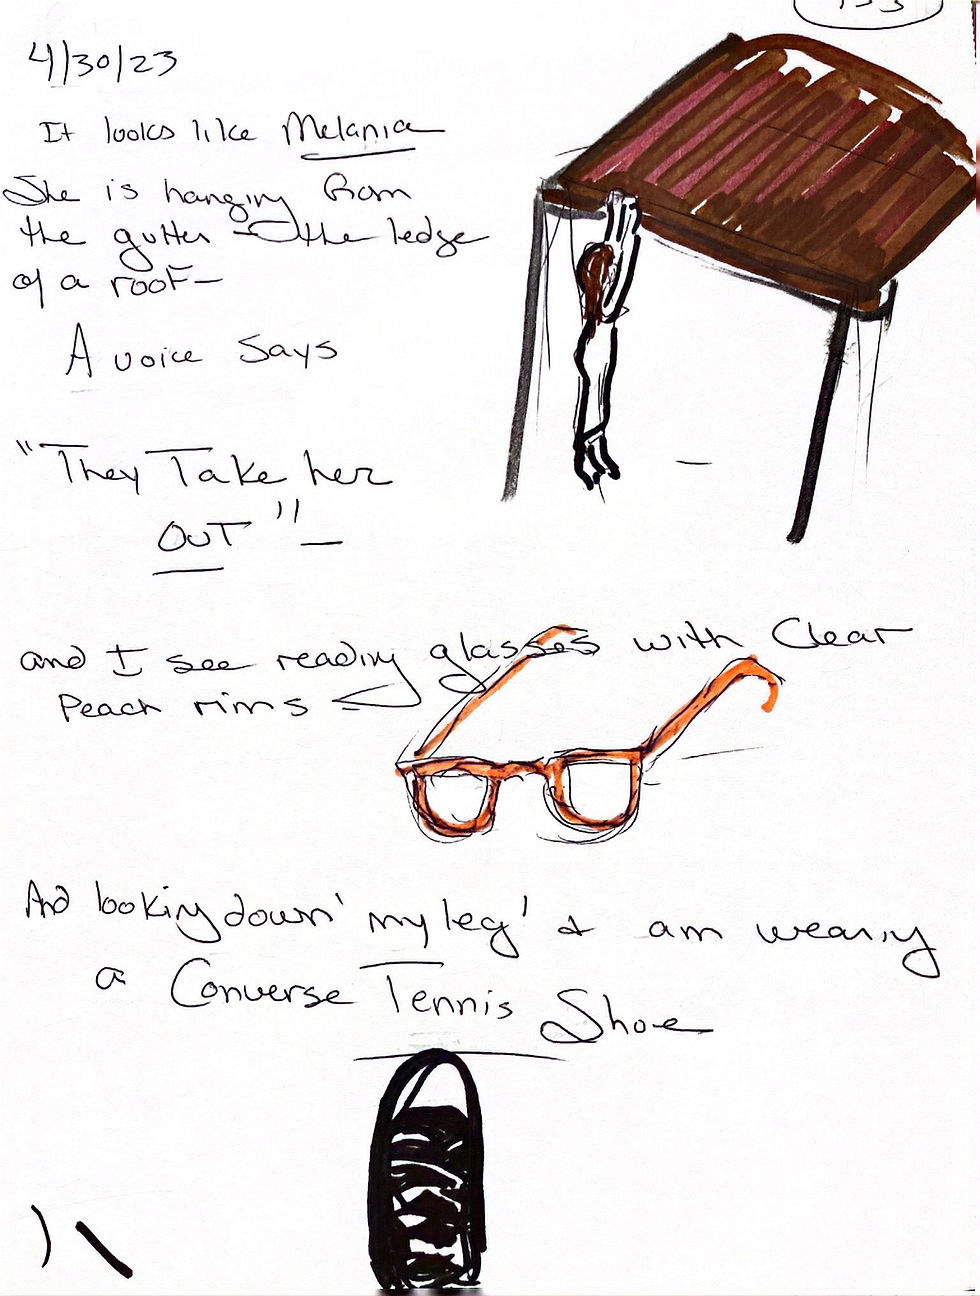 4/30/23
It looks like Melania
She is hanging from
the gutter - the ledge
of a roof -
A voice says
"They Take her
OUT" -
and I see reading glasses with Clear
Peach rims
And looking down 'my leg' & am wearing
a Converse Tennis Shoe